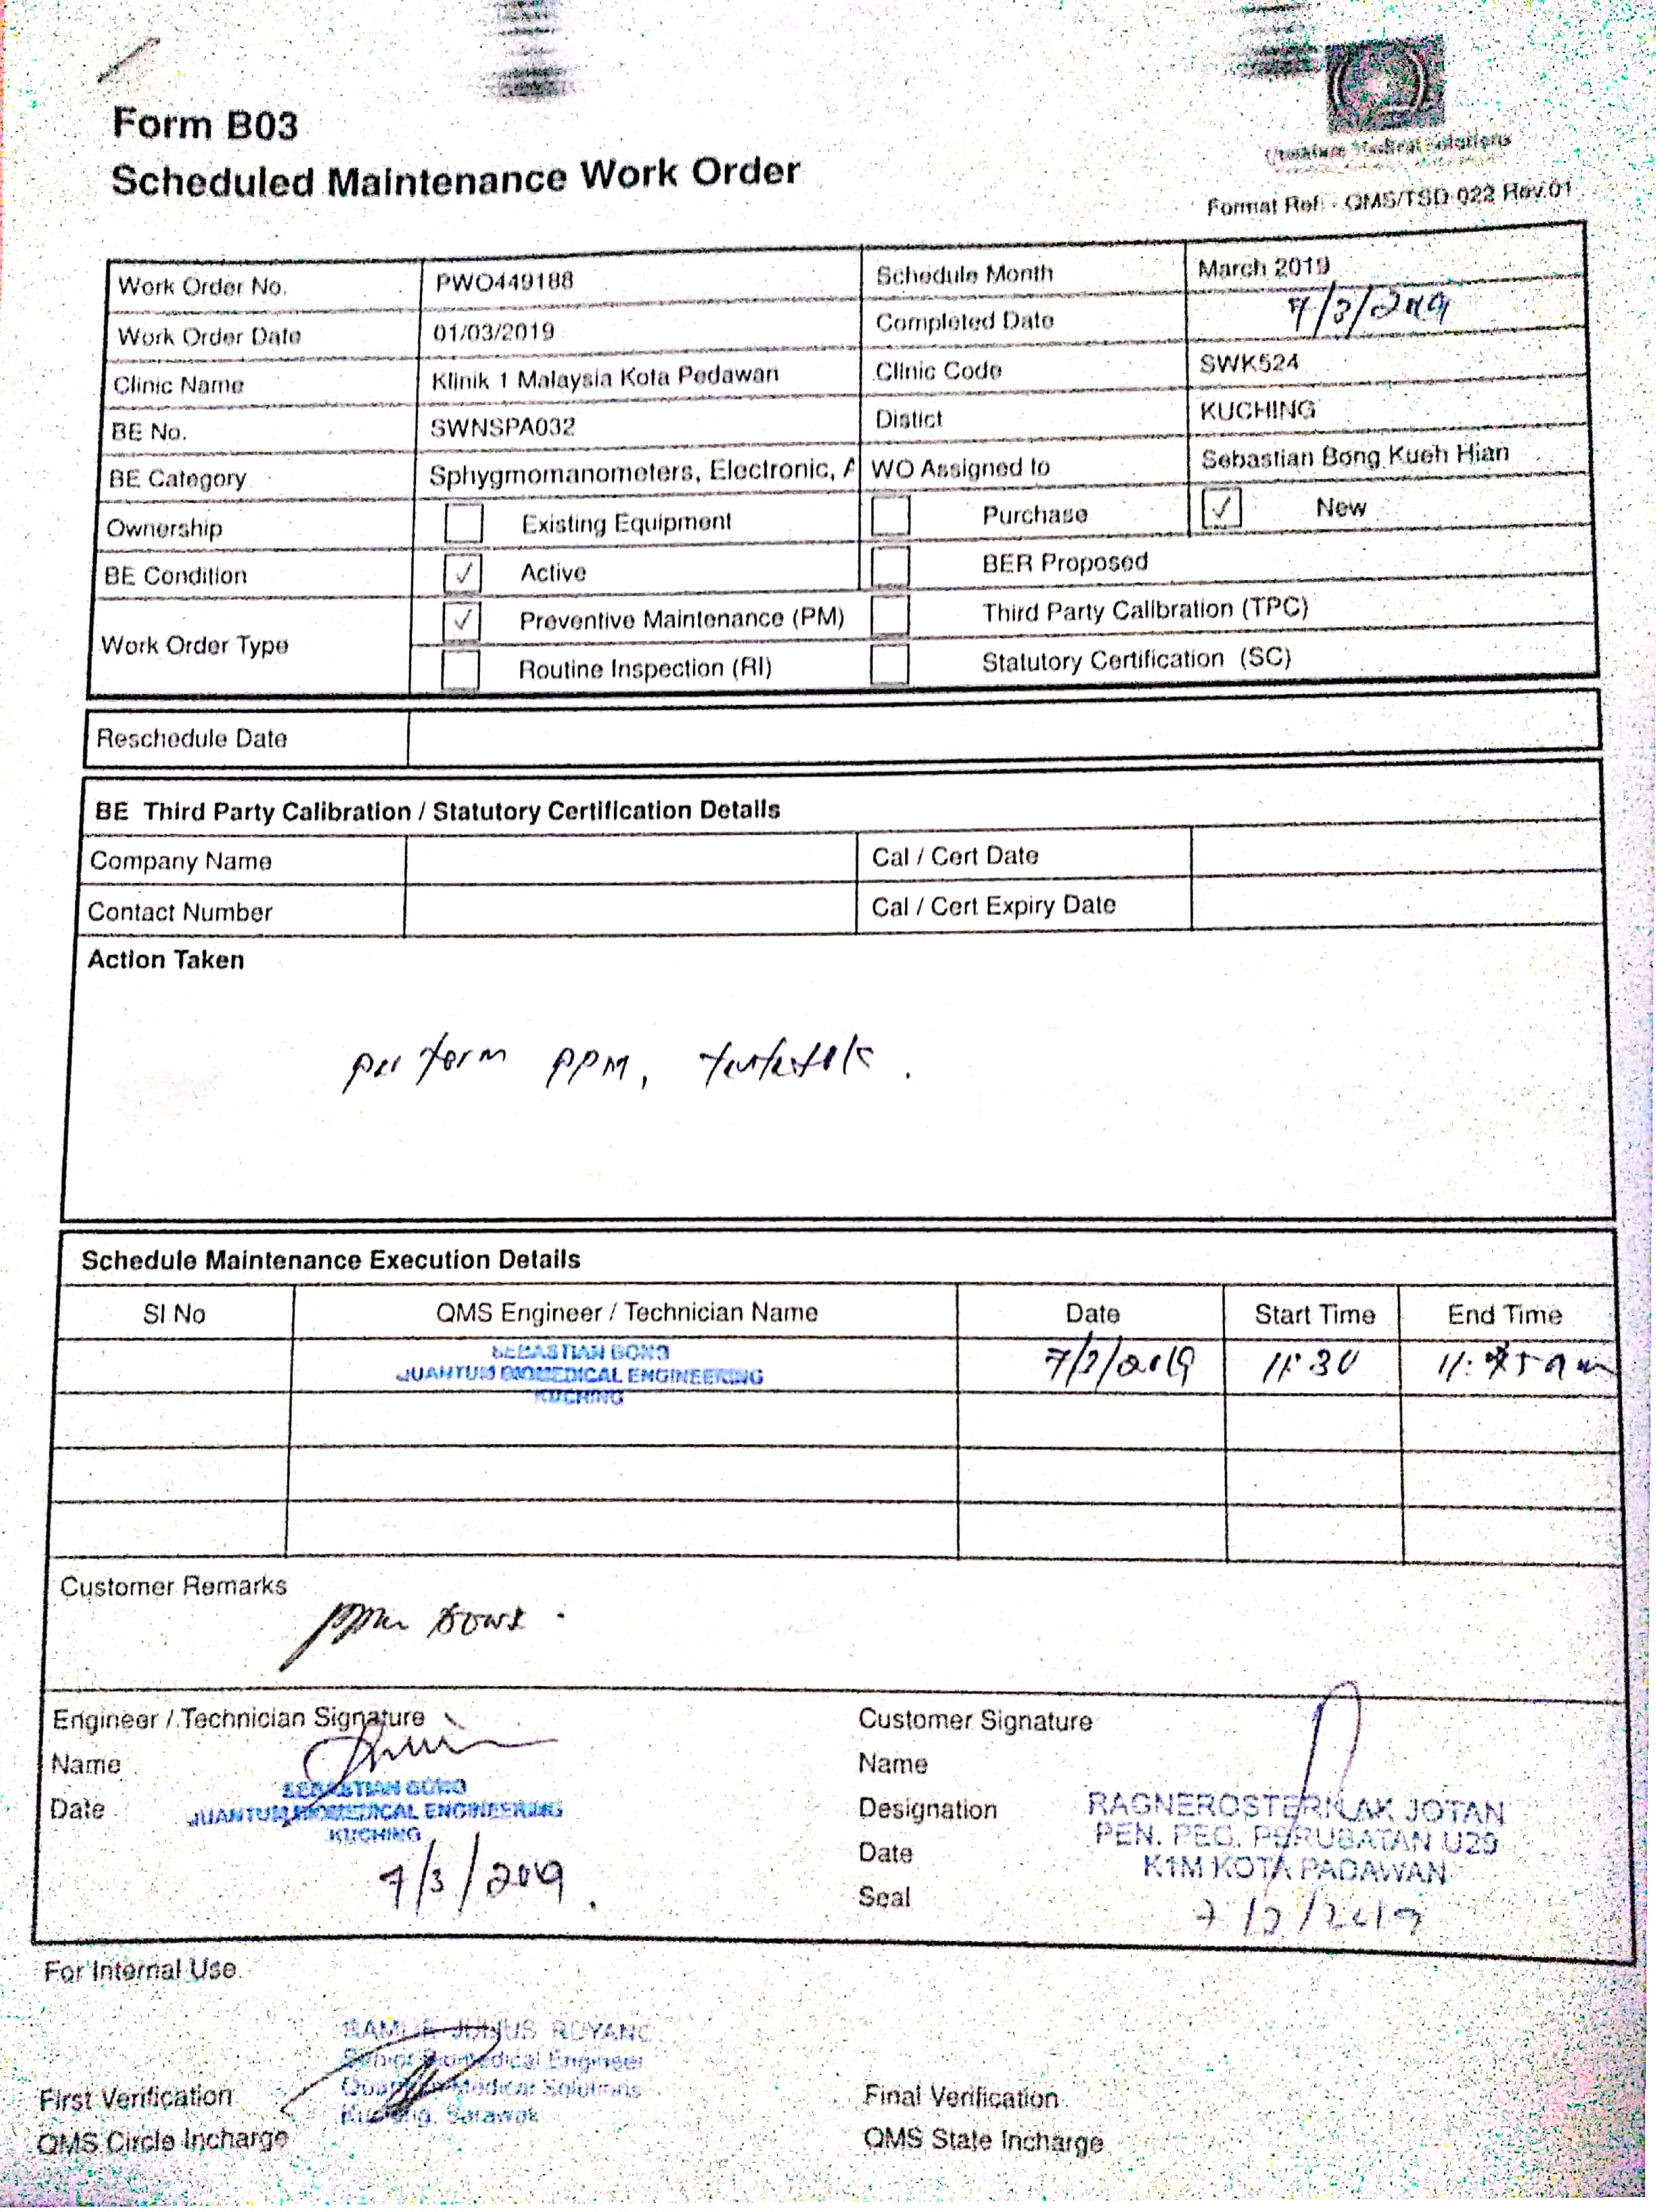 Form B03
Scheduled Maintenance Work Order
Format Ref. - QMS/TSD-022 Rev.01
Work Order No. PWO449188 Schedule Month March 2019
Work Order Date 01/03/2019 Completed Date 7/3/2019
Clinic Name Klinik 1 Malaysia Kota Pedawan Clinic Code SWK524
BE No. SWNSPA032 Distict KUCHING
BE Category Sphygmomanometers, Electronic, A WO Assigned to Sebastian Bong Kueh Hian
Ownership Existing Equipment Purchase ✓ New
BE Condition ✓ Active BER Proposed
Work Order Type ✓ Preventive Maintenance (PM) Third Party Calibration (TPC)
Routine Inspection (RI) Statutory Certification (SC)
Reschedule Date
BE Third Party Calibration / Statutory Certification Details
Company Name Cal / Cert Date
Contact Number Cal / Cert Expiry Date
Action Taken
perform ppm,
Schedule Maintenance Execution Details
SI No QMS Engineer / Technician Name Date Start Time End Time
SEBASTIAN BONG
QUANTUM BIOMEDICAL ENGINEERING 7/3/2019 11:30
KUCHING
Customer Remarks
ppm done.
Engineer / Technician Signature Customer Signature
Name Name
SEBASTIAN BONG
Date Designation RAGNEROSTER AK JOTAN
QUANTUM BIOMEDICAL ENGINEERING PEN. PEG. PERUBATAN U29
KUCHING
Date K1M KOTA PADAWAN
7/3/2019 Seal 7/3/2019
For Internal Use
JULIUS ROYANG
Senior Biomedical Engineer
Quantum Medical Solutions
First Verification Kuching, Sarawak Final Verification
QMS Circle Incharge QMS State Incharge